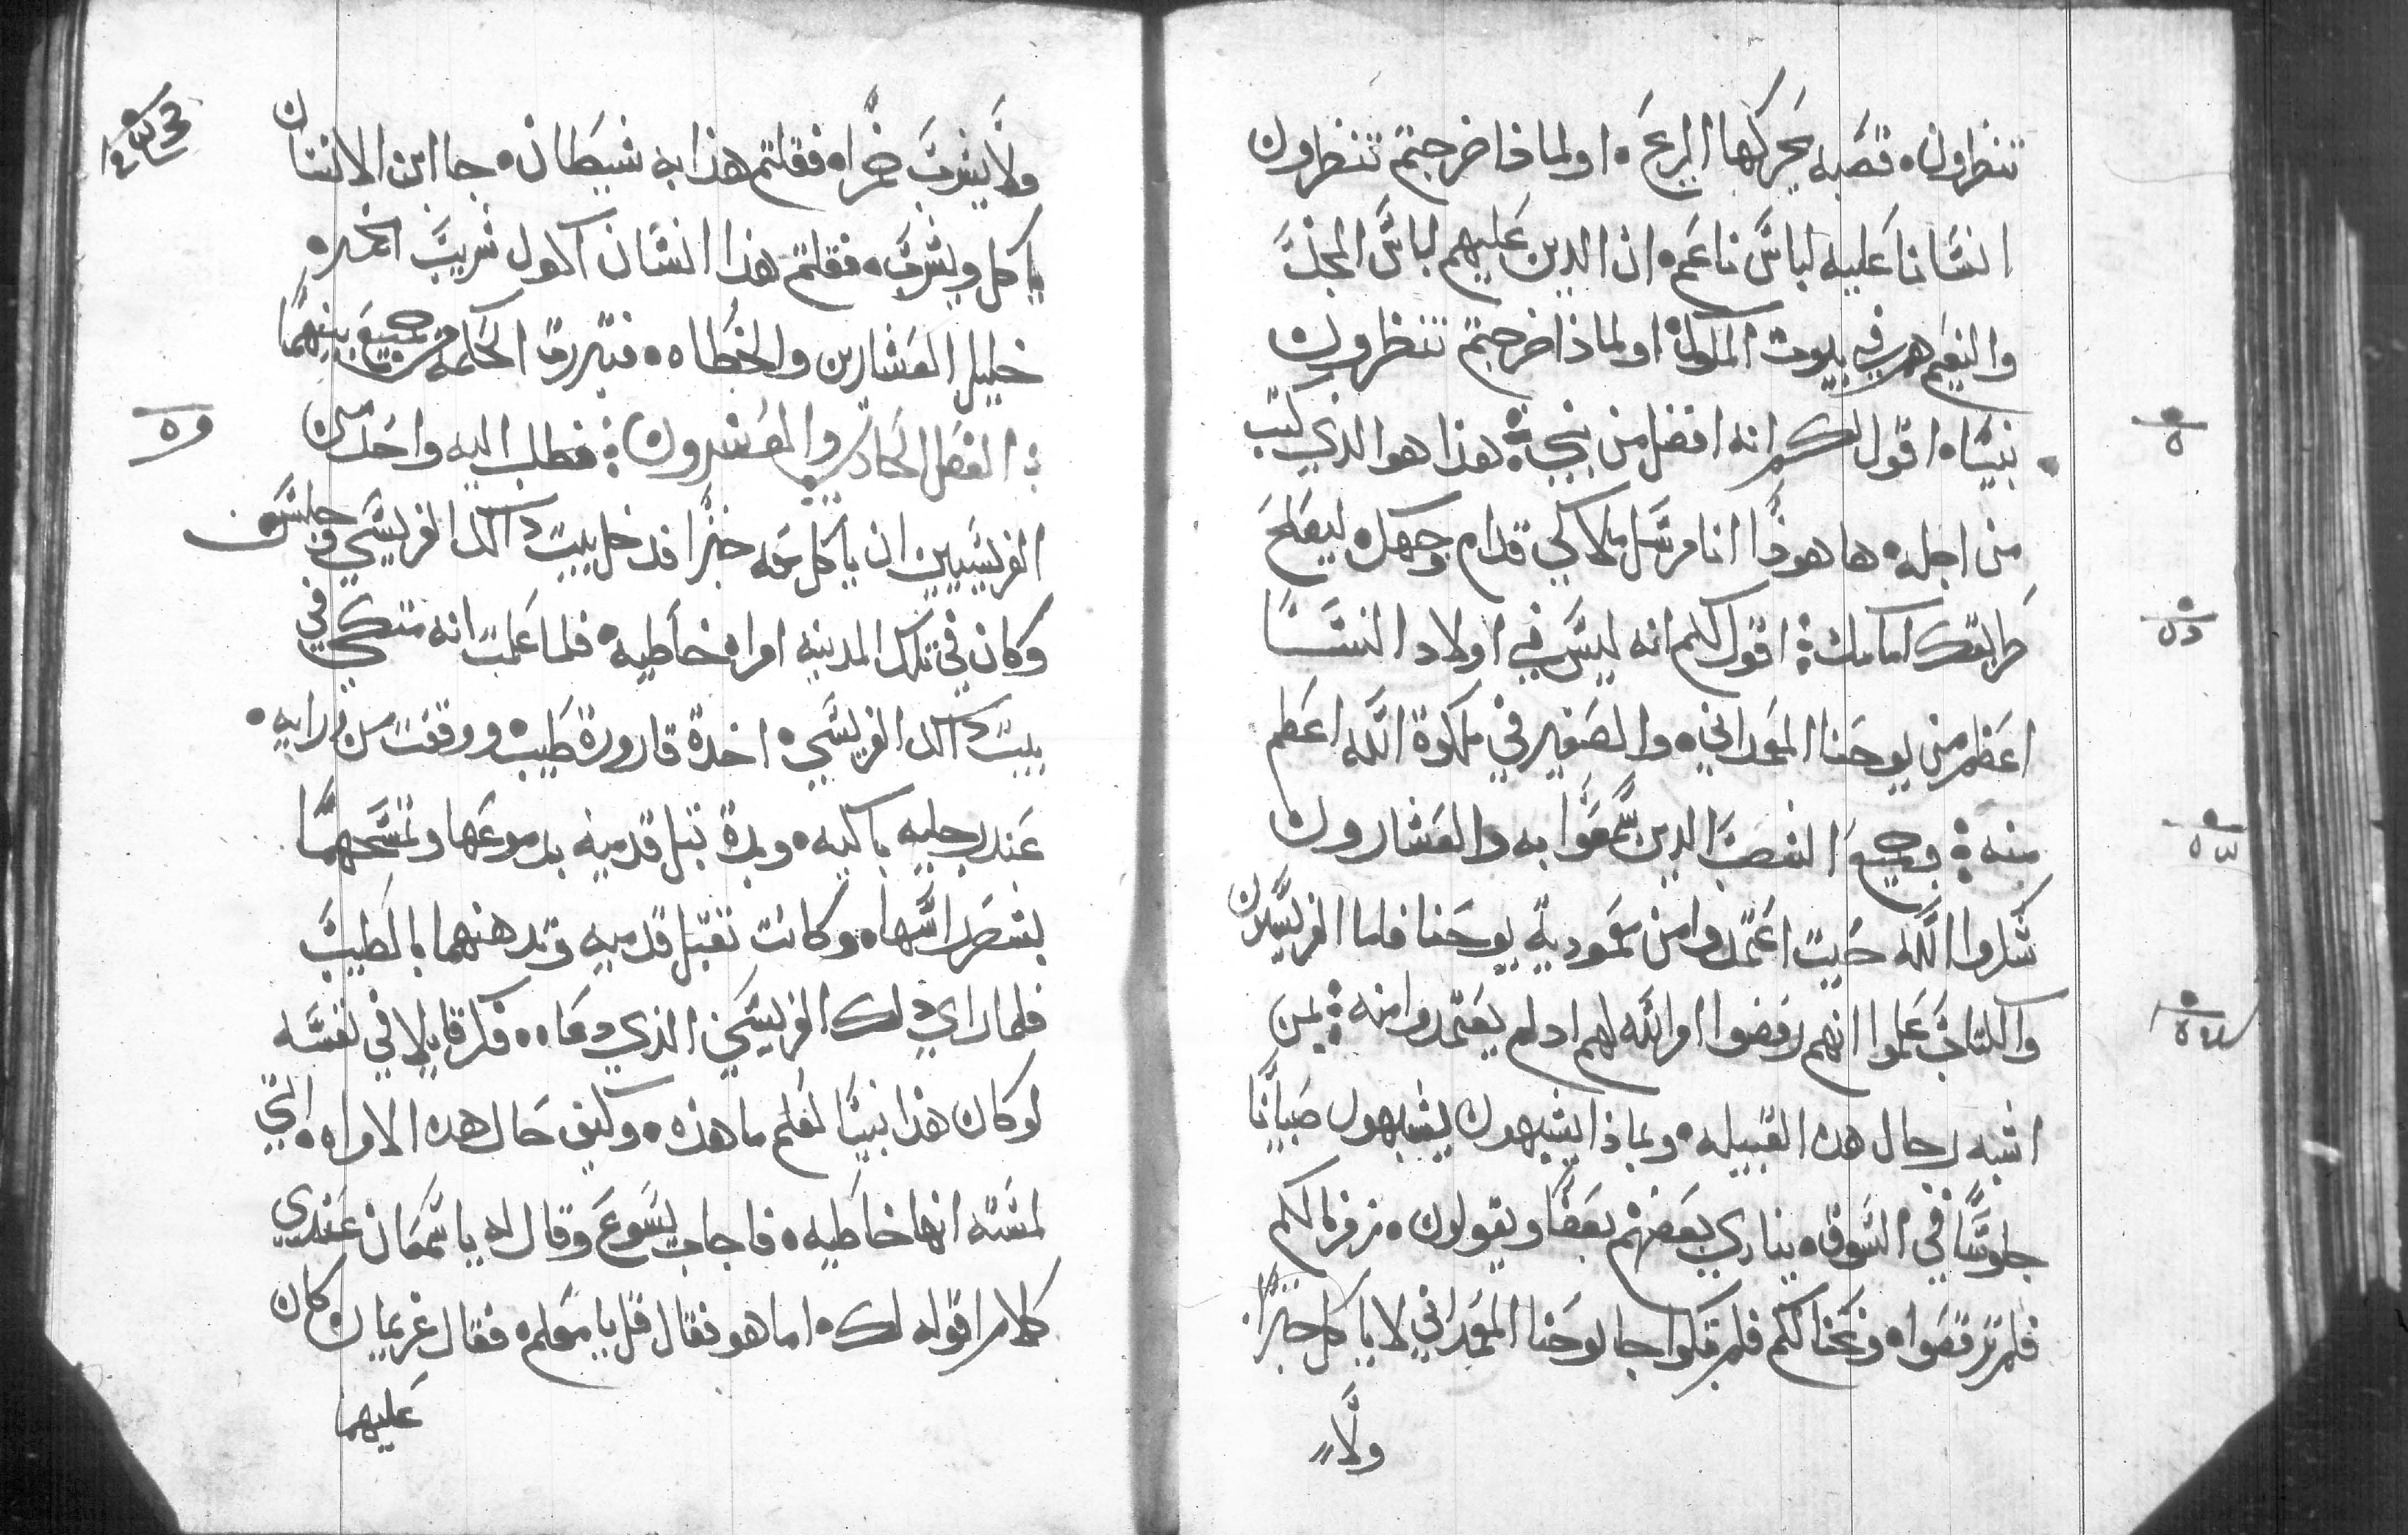 تنظرون، قصبه يحركها الريح، او لماذا خرجتم تنظرون
انسانا عليه لباس ناعم، ان الدين عليهم لباس المجد
والنعيم هم في بيوت الملوك، او لماذا خرجتم تنظرون
نبيا، اقول لكم انه افضل من نبي؛ هذا هو الذي كتب
من اجله، ها هوذا انا مرسل ملاكي قدام وجهك ليصلح
طريقك امامك؛ اقول لكم انه ليس في اولاد النسا
اعظم من يوحنا المعمداني، والصغير في ملكوة الله اعظم
منه؛ وجميع الشعب الدين سمعوا به والعشارون
شكروا الله حيت اعتمدوا من معمودية يوحنا فاما الفريسين
والكتاب علموا انهم رفضوا امر الله لهم اد لم يعتمدوا منه؛ بمن
اشبه رجال هده القبيله، وبماذا يشبهون يشبهون صبيانا
جلوسا في السوق، ينادي بعضهم بعضا ويقولون، زمرنا لكم
فلم ترقصوا، ونحنا لكم فلم تبكوا جا يوحنا المعمداني لا ياكل خبزا
ولا
ولا يشرب خمرا، فقلتم هذا به شيطان، جا ابن الانسان
ياكل ويشرب، فقلتم هذا انسان اكول شريب الخمر،
خليل العشارين والخطاه، فتبررة الحكمه من جميع بنيها
؛ الفصل الحادي والعشرون؛ فطلب اليه واحد من
الفريسيين ان ياكل معه خبزا فدخل بيت دالك الفريسي وجلس
وكان في تلك المدينه امراه خاطيه، فلما علمت انه متكي في
بيت دالك الفريسي، اخدة قارورة طيب، ووقفت من ورايه،
عند رجليه باكيه، وبدة تبل قدميه بدموعها وتمسحهما
بشعر راسها، وكانت تقبل قدميه وتدهنهما بالطيب
فلما راي دلك الفريسي الذي دعاه، فكر قايلا في نفسه
لو كان هذا نبيا لعلم ما هذه، وكيف حال هده الامراه، التي
لمسته انها خاطيه، فاجاب يسوع وقال له يا سمعان عندي
كلام اقوله لك، اما هو فقال قل يا معلم، فقال غريمان كان
عليهما